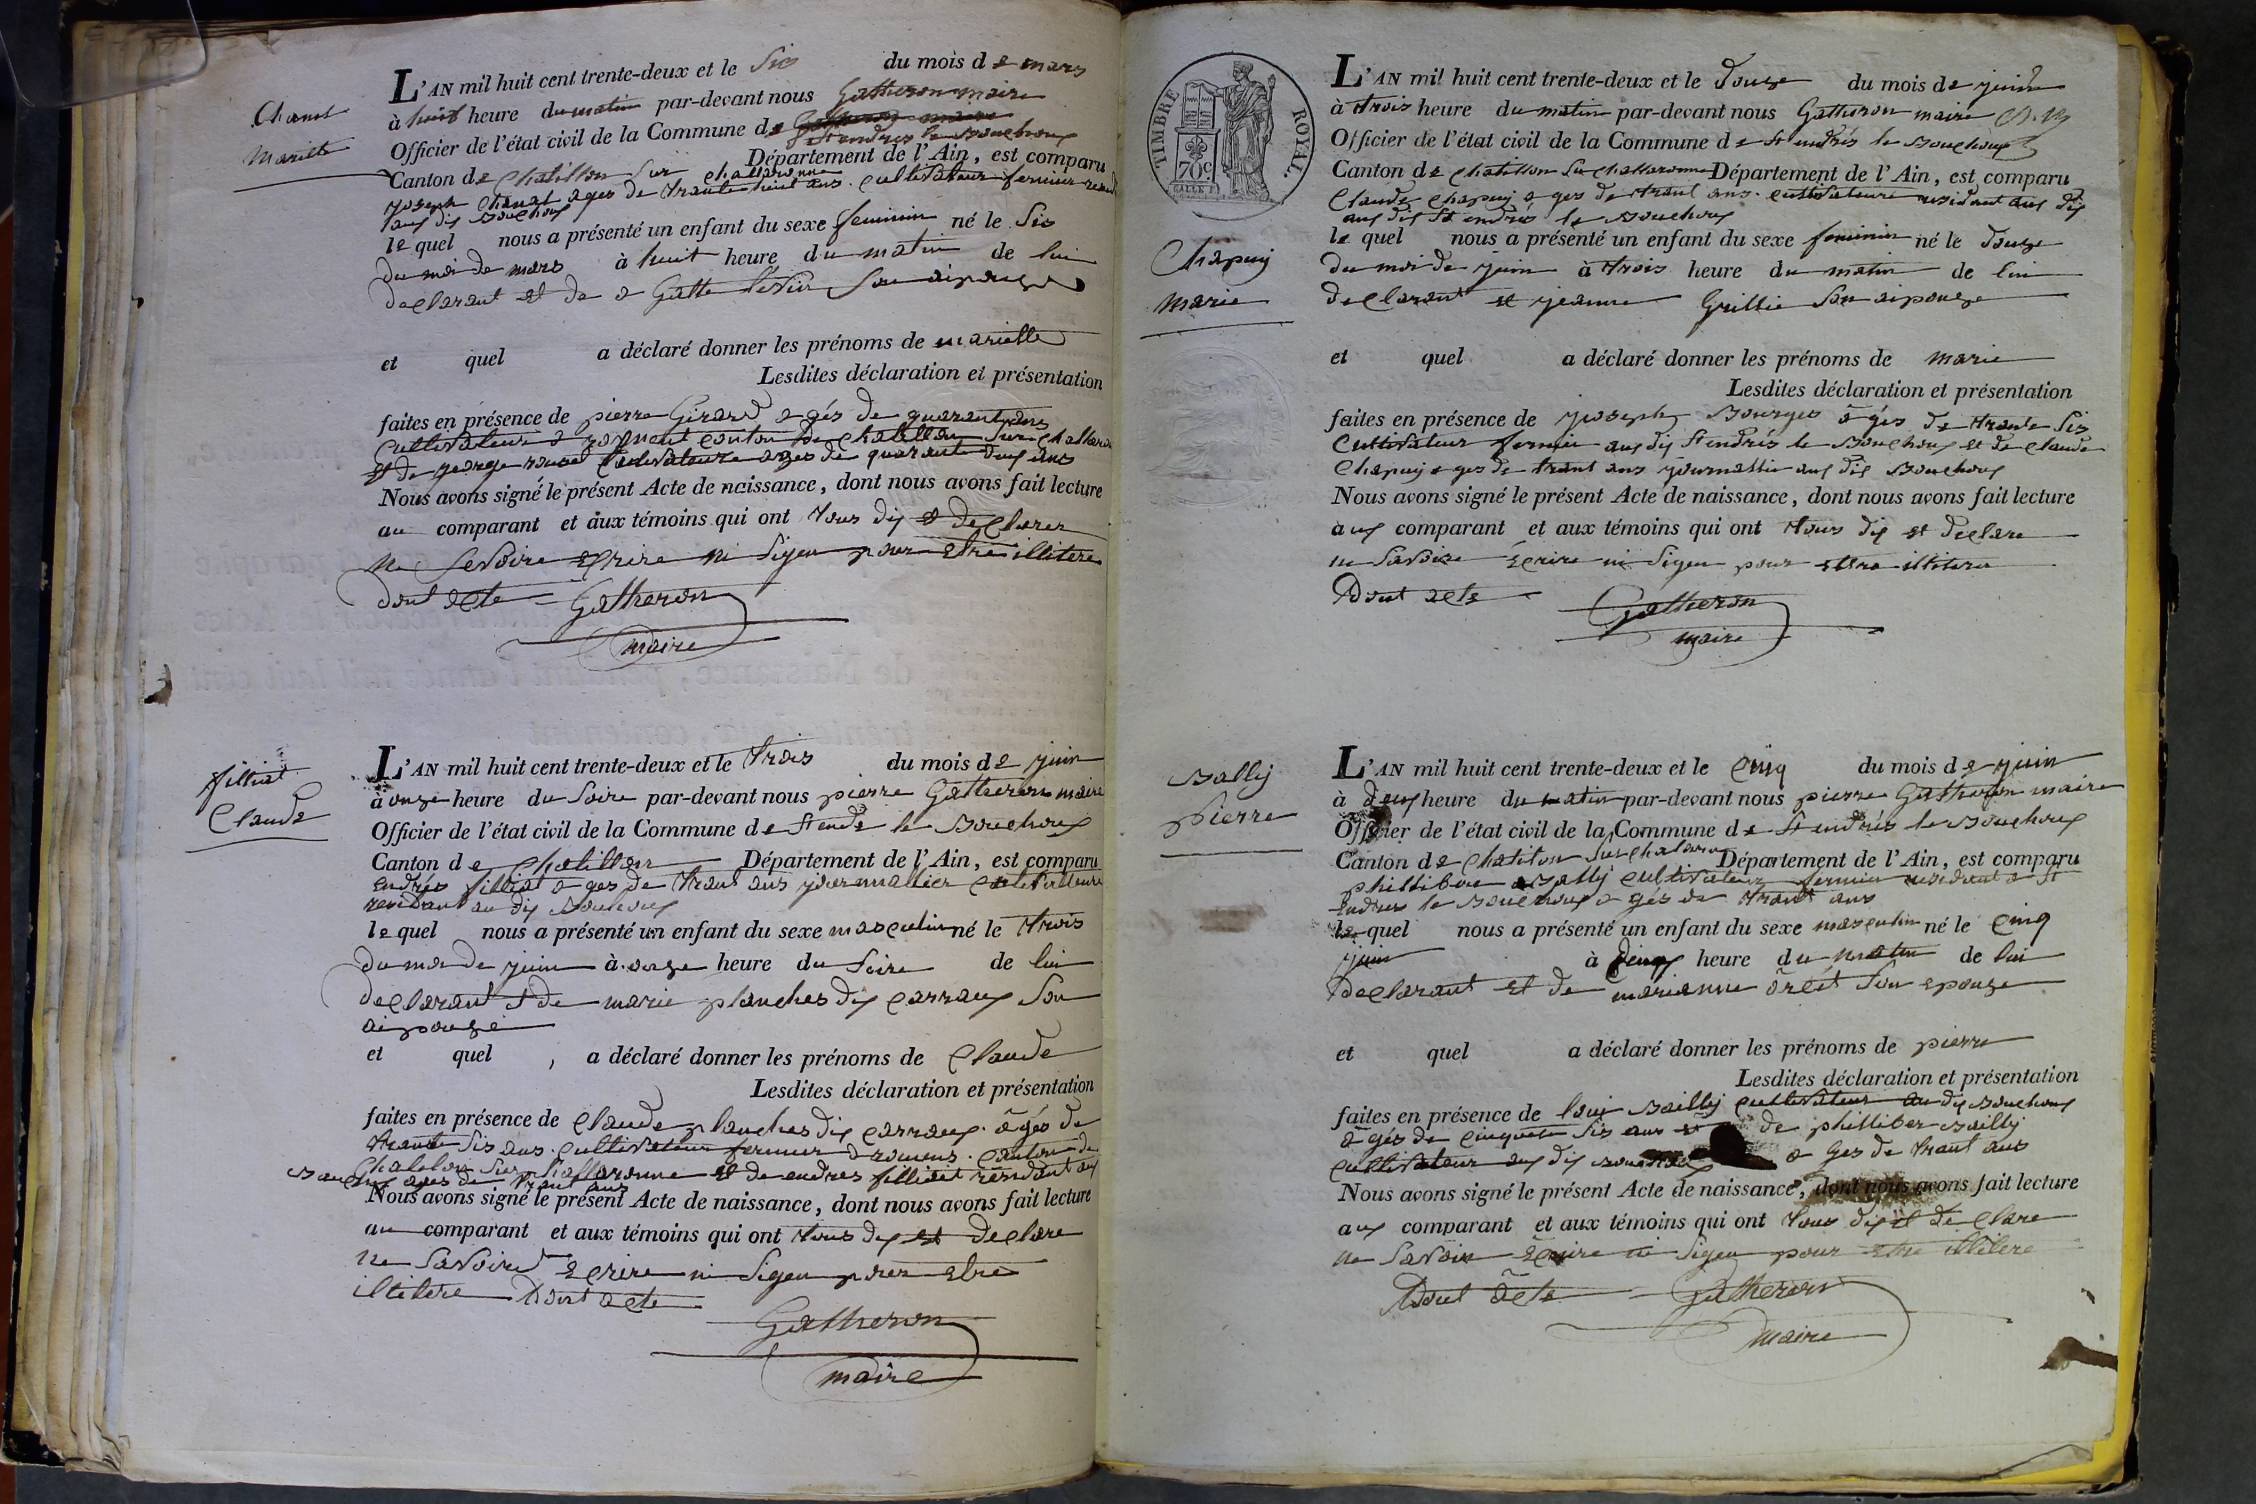 Chanel
Mariette
L'AN mil huit cent trente-deux et le Sis du mois de mars
à huit heure du matin par-devant nous Gatheron maire
Officier de l'état civil de la Commune de Gatheron maire
St endrés le Bouchoux
Canton de Chatillon Sur Challaronne Département de l'Ain, est comparu
joseph Chanel ages de trante huit ans. cultivateur fermier
aux dis Bouchoux
le quel nous a présenté un enfant du sexe feminin né le Sis
du moi de mars à huit heure du matin de lui
declarant et de Son aipouze
et quel a déclaré donner les prénoms de mariette
Lesdites déclaration et présentation
faites en présence de pierre Girard agés de quarant ans
Cultivateur a canton de Chatillon Sur Challaron
et de george Cultivateure ages de quarante deux ans
Nous avons signé le présent Acte de naissance, dont nous avons fait lecture
au comparant et aux témoins qui ont tous dis e declarer
ne Sevoire ecrire ni Signer pour etre illitere
dont acte Gatheron
maire
filliat
Claude
L'AN mil huit cent trente-deux et le trois du mois de juin
à onze heure du Soire par-devant nous pierre Gatheron maire
Officier de l'état civil de la Commune de St endré le Bouchoux
Canton de Chatillon Département de l'Ain, est comparu
endrés filliat ages de trant ans journallier Cultivateure
residant au dis Bouchoux
le quel nous a présenté un enfant du sexe masculin né le trois
du moi de juin à onze heure du Soire de lui
declarant et de marie planches dis carraux Son
aipouze
et quel, a déclaré donner les prénoms de Claude
Lesdites déclaration et présentation
faites en présence de Claude planches dis carraux. agés de
trante Sis ans. cultivateur fermier a romens. Canton de
Chatelon Sur Challaronne et de endres filliait residant aux
Bouchoux ages de trant ans
Nous avons signé le présent Acte de naissance, dont nous avons fait lecture
au comparant et aux témoins qui ont tous dis et declare
ne Savoire ecrire ni Signer pour etre
illitere Dont acte
Gatheron
maire
TIMBRE ROYAL.
70c
Chapuy
marie
L'AN mil huit cent trente-deux et le Douze du mois de juin
à trois heure du matin par-devant nous Gatheron maire
Officier de l'état civil de la Commune de St endrés le Bouchoux
Canton de Chatillon Sur Challaronne Département de l'Ain, est comparu
Claude Chapuy ages de trant ans. cultivateure residant aux dis
aux dis St endrés le Bouchoux
le quel nous a présenté un enfant du sexe feminin né le Douze
du moi de juin à trois heure du matin de lui
declarant et jeanne Grillie Son aipouze
et quel a déclaré donner les prénoms de marie
Lesdites déclaration et présentation
faites en présence de joseph Bourges agés de trante Sis
Cultivateur fermier aux dis St endrés le Bouchoux et de Claude
Chapuy ages de trant ans journallie aux dis Bouchoux
Nous avons signé le présent Acte de naissance, dont nous avons fait lecture
aux comparant et aux témoins qui ont tous dis et declare
ne Savoire Ecrire ni Signer pour ettre illitere
Dont acte
Gatheron
maire
Bally
pierre
L'AN mil huit cent trente-deux et le Cinq du mois de juin
à deux heure du matin par-devant nous pierre Gatheron maire
Officier de l'état civil de la Commune de St endrés le Bouchoux
Canton de Chatilon Sur Chalaron Département de l'Ain, est comparu
phillibere Bally cultivateur fermier residant a St
endres le Bouchoux agés de trant ans
le quel nous a présenté un enfant du sexe masculin né le Cinq
juin à heure du matin de lui
declarant et de marianne Son epouze
et quel a déclaré donner les prénoms de pierre
Lesdites déclaration et présentation
faites en présence de loui Bailly cultivateur au dis Bouchoux
agés de cinquete Sis ans et de philliber Bailly
cultivateur aux dis Bouchoux a ges de trant ans
Nous avons signé le présent Acte de naissance, dont nous avons fait lecture
aux comparant et aux témoins qui ont tous dis et de Clare
ne Savoir Ecrire ni Signer pour etre illitere
Dont acte Gatheron
maire